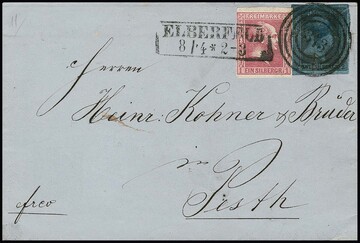 ELBERFELD
8 1/4 * 2-3
FREIMARKE
EIN SILBERGR.
Herren
Heinr: Kohner & Brüder
in
Pesth
frco